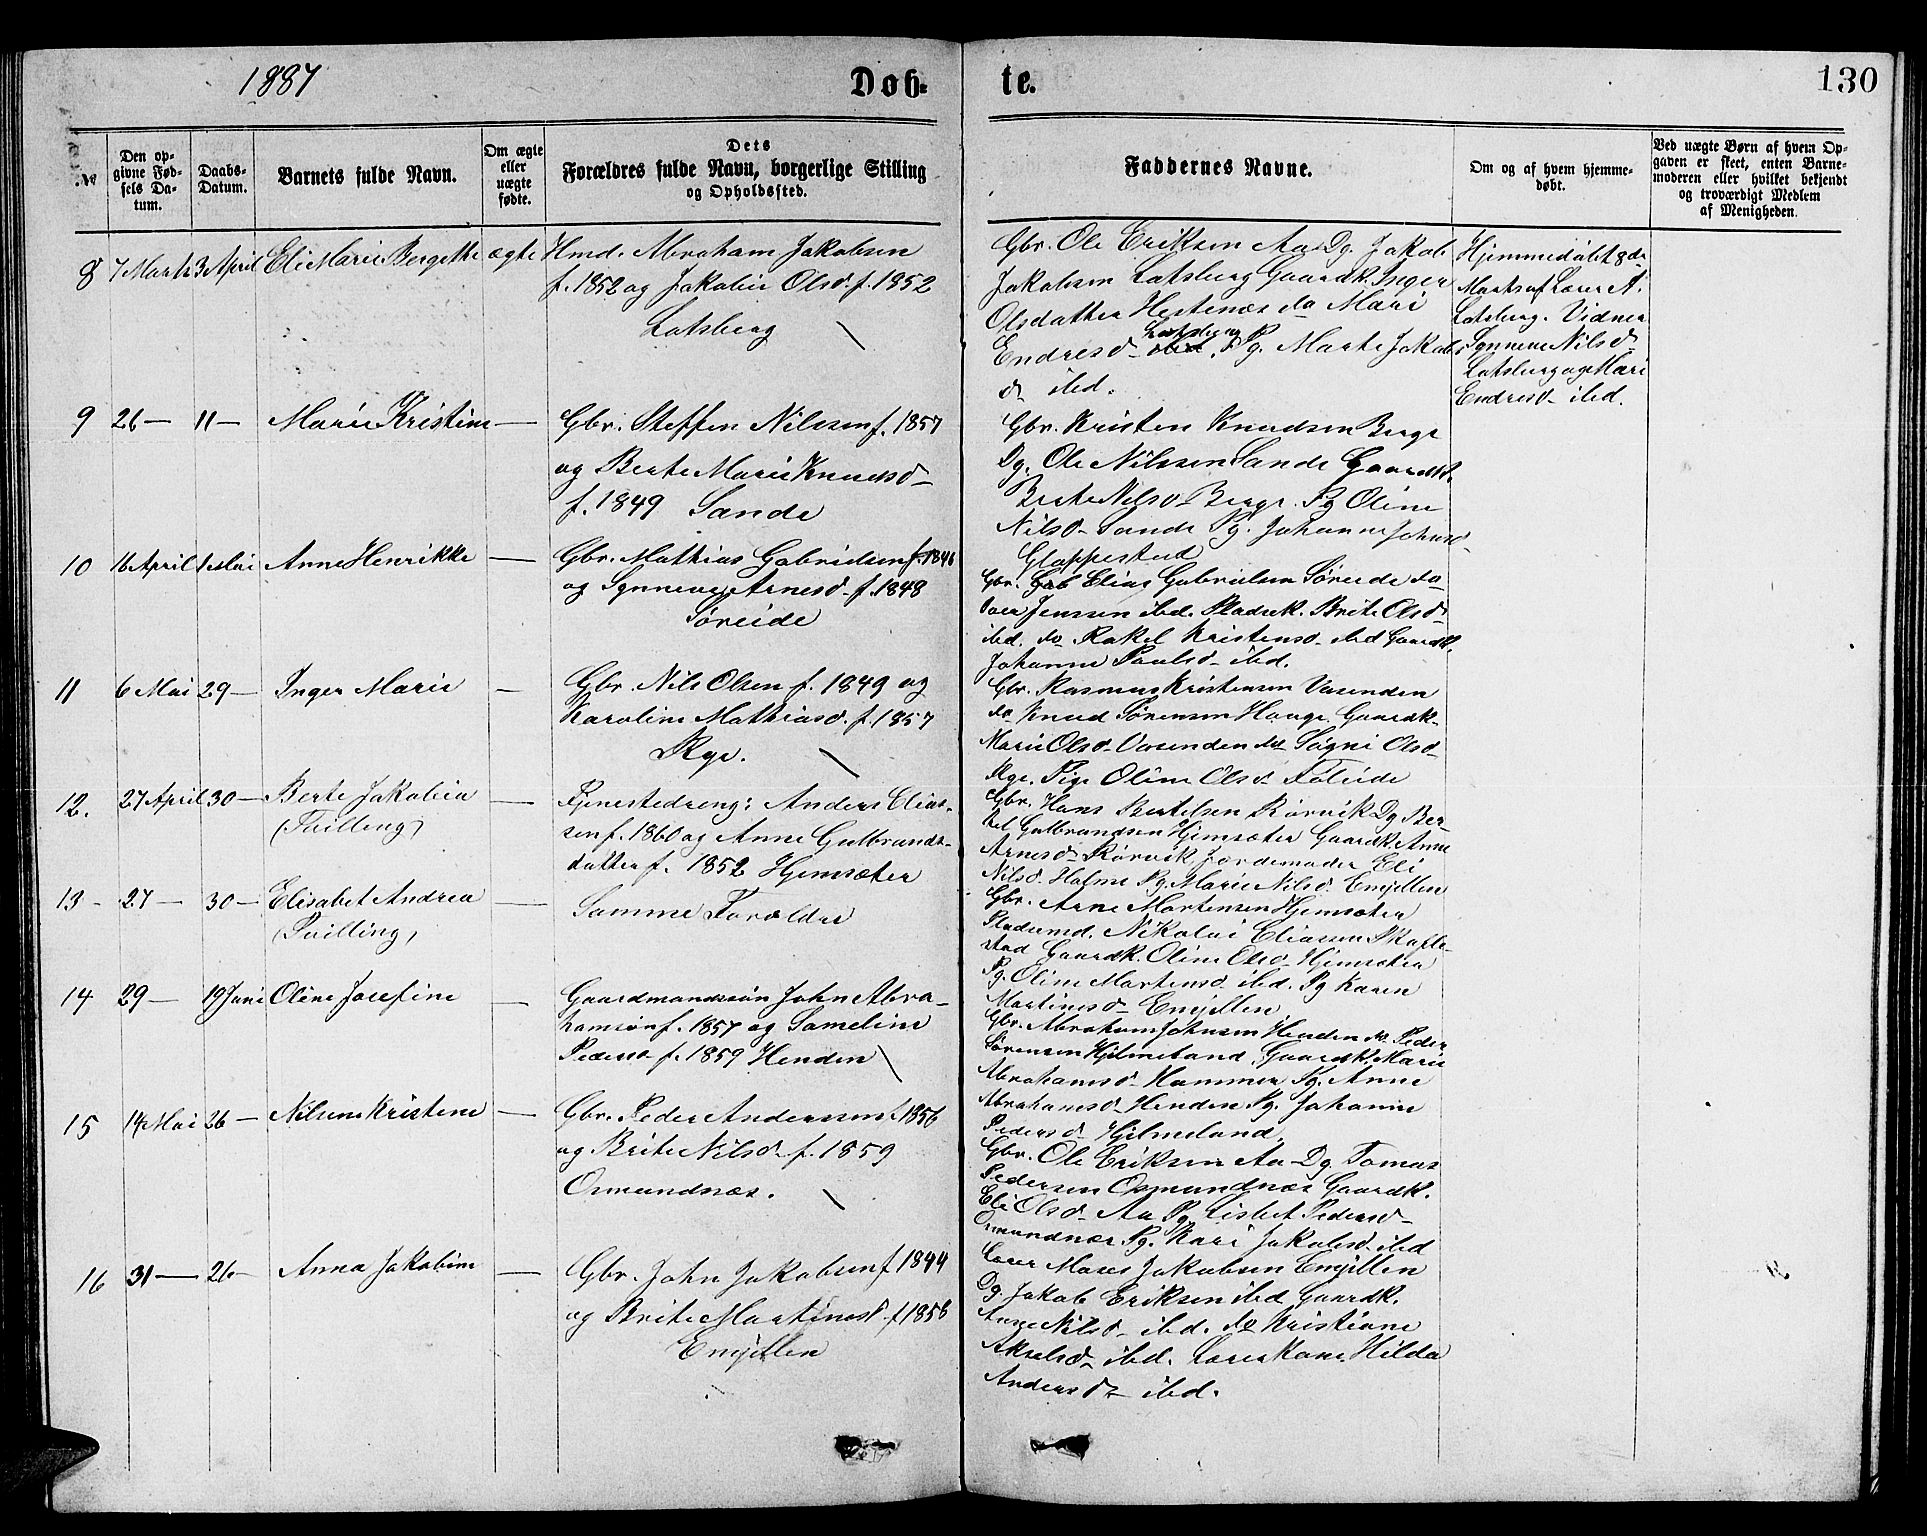 1887
Døb-
te.
130
№
Den op-
givne Fød-
sels Da-
tum.
Daabs-
Datum.
Barnets fulde Navn.
Om ægte
eller
uægte
fødte.
Dets
Forældres fulde Navn, borgerlige Stilling
og Opholdssted.
Faddernes Navne.
Om og af hvem hjemme-
døbt.
Ved uægte Børn af hvem Op-
gaven er skeet, enten Barne-
moderen eller hvilket bekjendt
og troværdigt Medlem
af Menigheden.
8 7 Marts 3 April Eli Marie Bergethe ægte Hmd. Abraham Jakobsen
f. 1852 og Jakobie Olsd. f. 1852
Lotsberg
Gbr. Ole Eriksen Aa Dg. Jakob
Jakobsen Lotsberg Gaardk. Inger
Olsdatter Hestenes do Mari
Endresd Lotsberg Pg. Marte Jakobs
d ibd.
Hjemmedøbt 8de
Marts af Lærer A.
Lotsberg. Vidner
Synneve Nilsd
Lotsberg og Mari
Endresd ibd.
9 26 — 11 — Marie Kristine —
Gbr. Steffen Nilssen f. 1857
og Berte Marie Knudsd
f. 1849 Sande
Gbr. Kristen Knudsen Berge
Dg. Ole Nilssen Sande Gaardk.
Berte Nilsd Berge. Pg Oline
Nilsd Sande Pg. Johanne Johnsd
Gloppestad
10 16 April 1 Mai Anne Henrikke —
Gbr. Mathias Gabrielsen f. 1846
og Synneve Arnesd. f. 1848
Søreide
Gbr. Elias Gabrielsen Søreide do
Iver Jenssen ibd. Pladsek. Brite Olsd
ibd. do Rakel Kristensd ibd Gaardk.
Johanne Paulsd ibd.
11 6 Mai 29 — Inger Marie —
Gbr. Nils Olsen f. 1849 og
Karoline Mathiasd. f. 1857
Ryge.
Gbr. Rasmus Kristensen Vasenden
do Knud Sørensen Hauge Gaardk
Marie Olsd Vasenden do Søgni Olsd
Ryge. Pige Oline Olsd
12. 27 April 30 — Berte Jakobia —
(Tvilling)
Tjenestedreng: Anders Elias-
sen f. 1860 og Anne Gulbrands-
datter f. 1852 Hjemsæter
Gbr. Hans Bertelsen Rørvik Dg Ber-
tel Gulbrandsen Hjemsæter Gaardk. Anne
Arnesd Rørvik Jordemoder Eli
Nilsd. Holme Pg. Marie Nilsd Emjellen
13 - 27 — 30 — Elisabet Andrea —
(Tvilling)
Samme Forældre
Gbr. Arne Mortensen Hjemsæter
Pladsmd. Nikolai Eliassen Skafle-
stad Gaardk. Oline Olsd Hjemsæter
Pg. Oline Martensd ibd. Pg Karen
Martinusd Emjellen
14 29 — 19 Juni Oline Josefine —
Gaardmandssøn John Abra-
hamsøn f. 1857 og Sameline
Pedersd f. 1859 Henden
Gbr. Abraham Johnsen Henden do Peder
Sørensen Hjelmeland, Gaardk. Marie
Abrahamsd Hammer Pg. Anne
Abrahamsd Henden Pg. Johanne
Pedersd Hjelmeland.
15 14 Mai 26 — Nilsine Kristine —
Gbr. Peder Anderssen f. 1856
og Brite Nilsd. f. 1859
Osmundnæs.
Gbr. Ole Eriksen Aa Dg. Tomas
Pedersen Osmundnæs Gaardk.
Eli Olsd Aa Pg. Lisbet Pedersd
Osmundnæs. Pg. Kari Jakobsd ibd
16 31 — 26 — Anna Jakobine —
Gbr. John Jakobsen f 1844
og Brite Martinusd. f 1856
Emjellen
Lærer Moses Jakobsen Emjellen
Dg. Jakob Eriksen ibd Gaardk.
Anne Nilsd ibd. do Kristiane
Akselsd ibd. Lærer Kone Hilda
Andersd ibd.